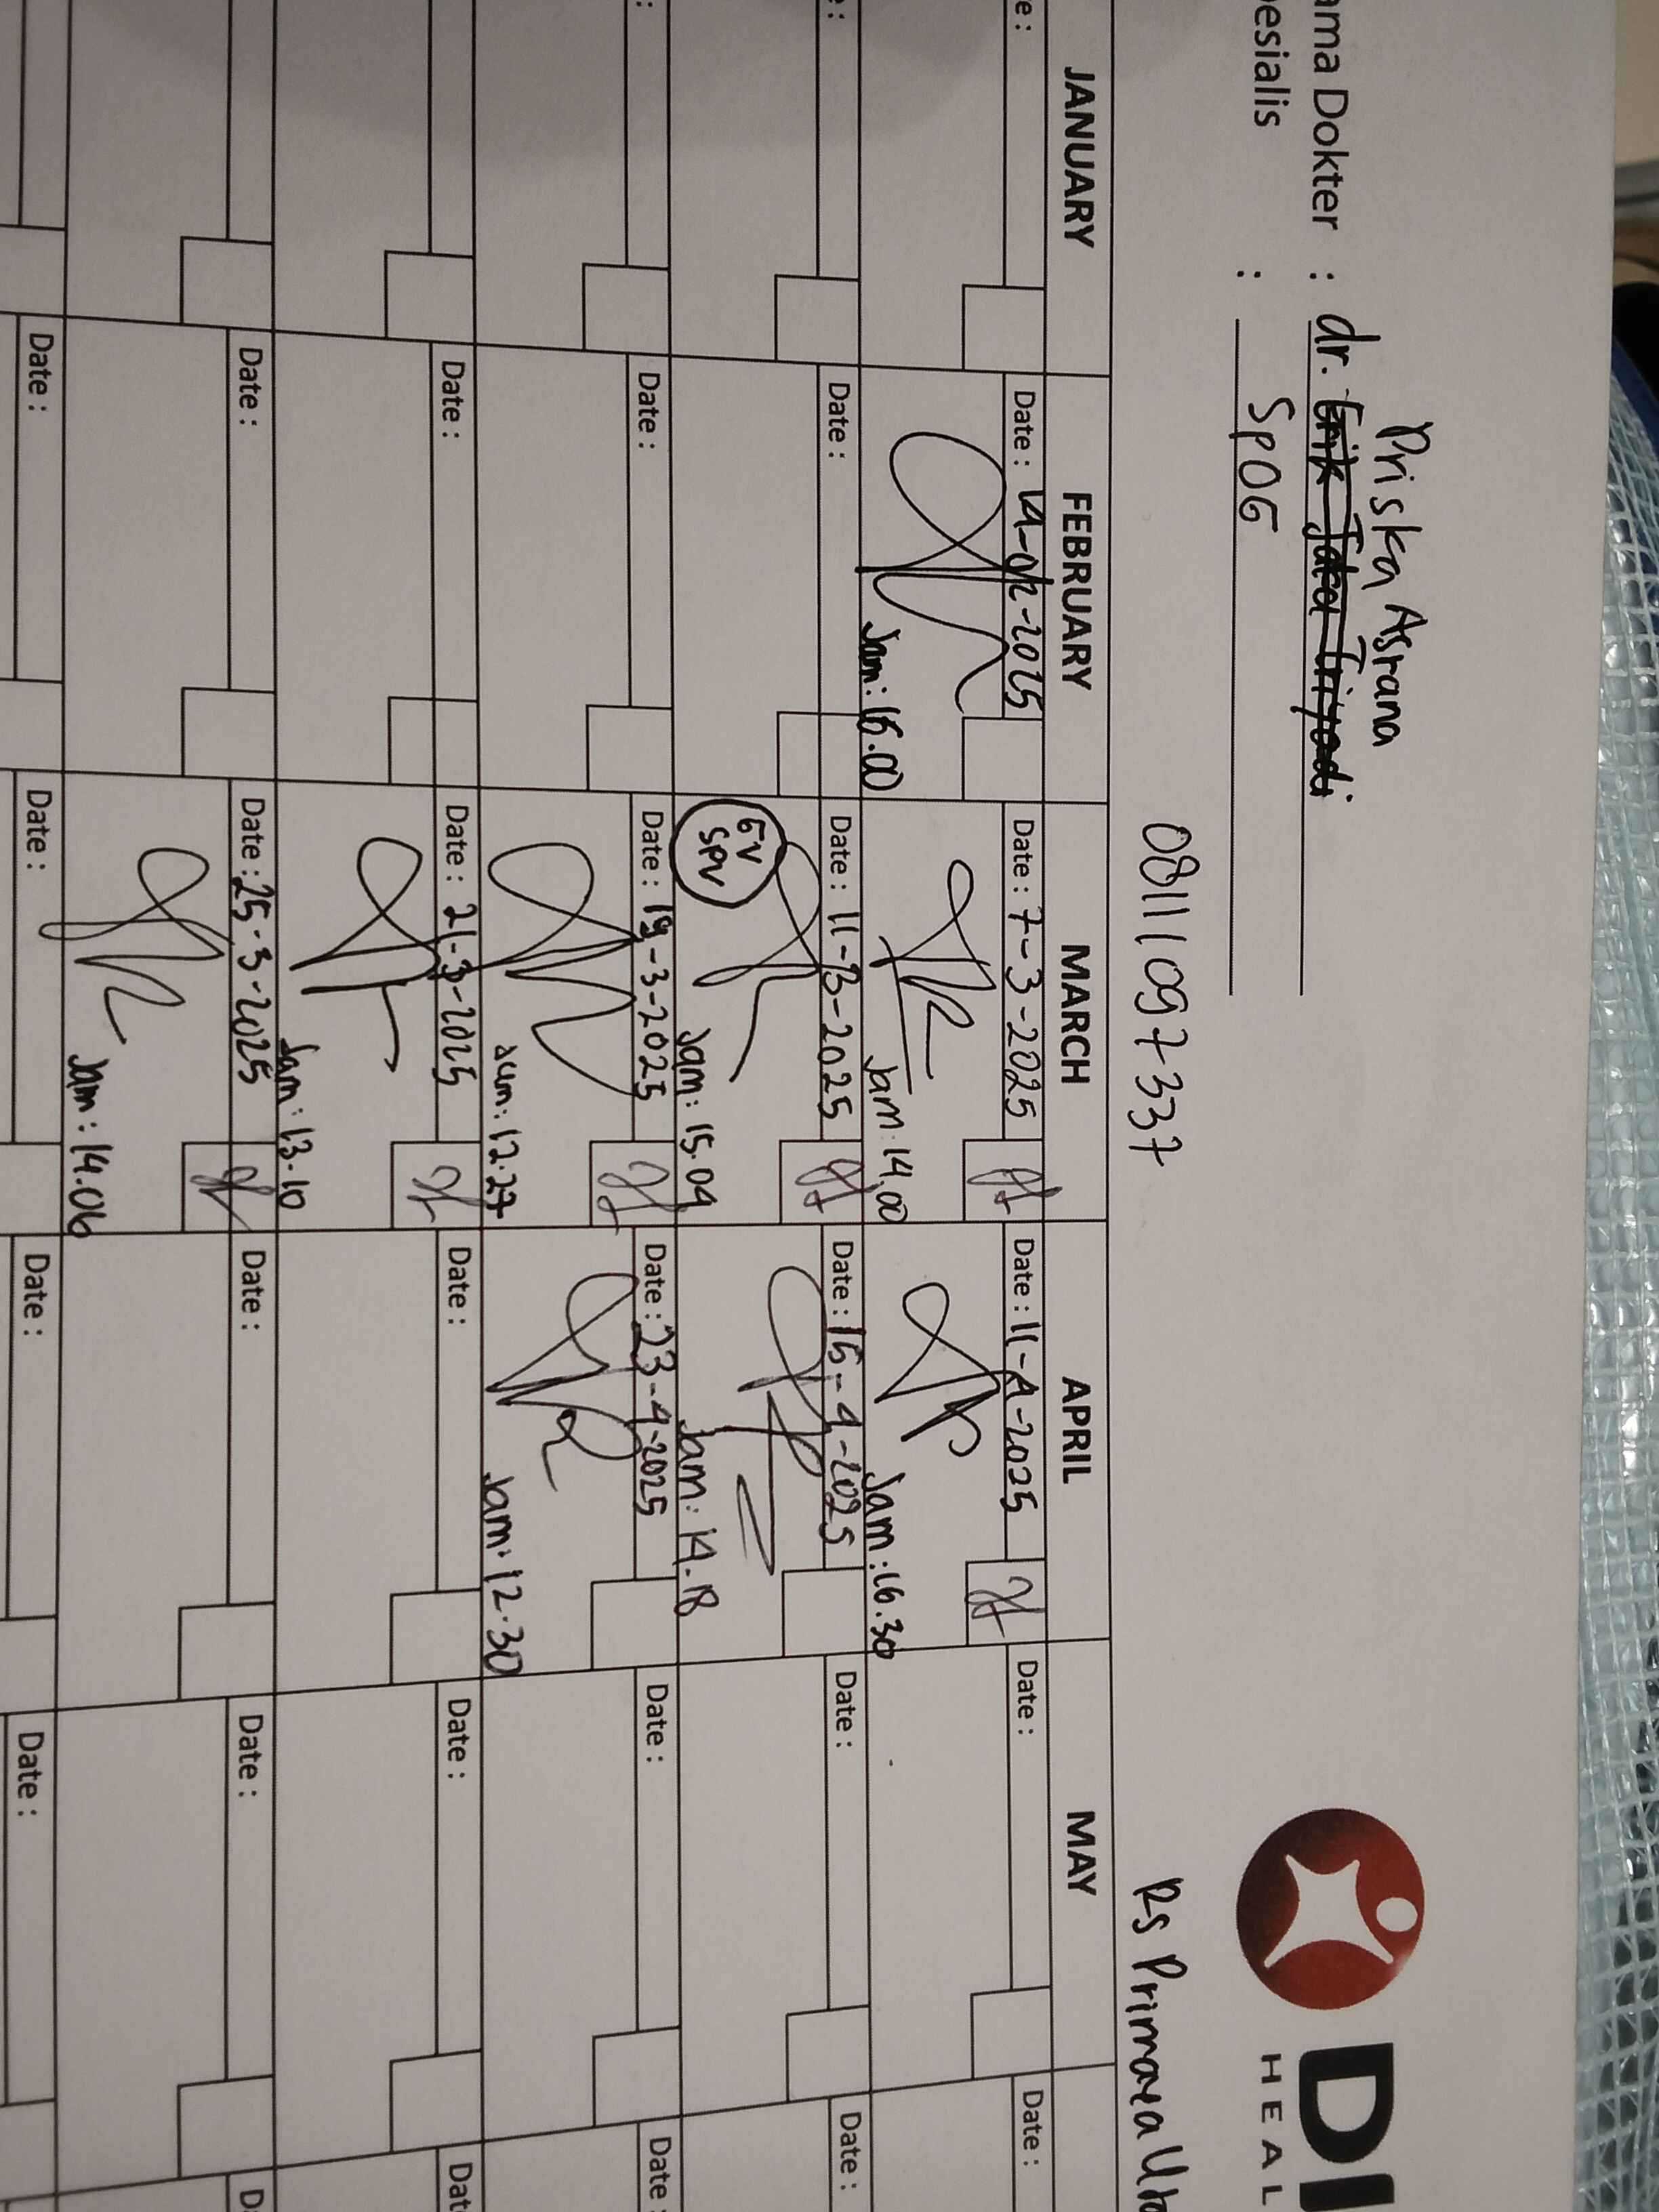 ama Dokter : dr. Priska Asrana
esialis : SpOG
08111097337
RS Primaya
DI
HEAL
JANUARY FEBRUARY MARCH APRIL MAY
e : Date : Date : 7-3-2025 Date : 11-4-2025 Date : Date :
Jam : 16.00 Jam : 14.00 Jam : 16.30
e : Date : Date : 11-3-2025 Date : 15-4-2025 Date : Date :
SPV
Jam : 15.09 Jam : 14.18
: Date : Date : 19-3-2025 Date : 23-4-2025 Date : Date :
Jam : 12.27 Jam : 12.30
Date : Date : 21-3-2025 Date : Date : Dat
Jam : 13.10
Date : Date : 25-3-2025 Date : Date : D
Jam : 14.06
Date : Date : Date : Date :